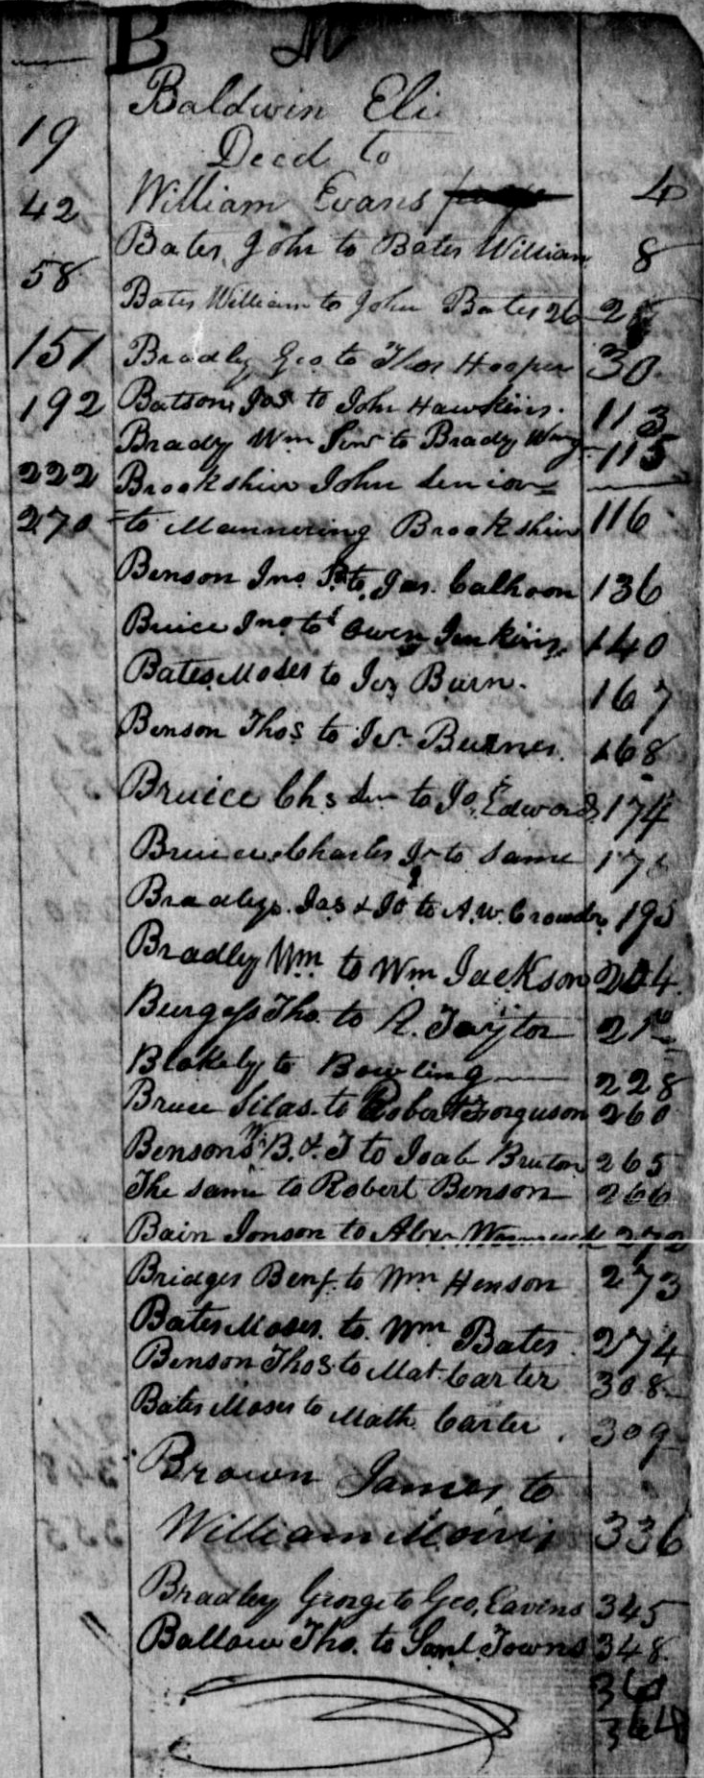 B
Baldwin Eli
19
Deed to
42 William Evans 4
Bates John to Bates William 8
58
Bates William to John Bates 26
151 Bradly Geo to Thos Hooper 30
192 Batson Jas to John Hawkins. 113
Brady Wm Senr to Brady 115
222 Brookshire John Senior
270 to Mannering Brookshire 116
Benson Jno Sr to Jas. Calhoon 136
Bruice Jno to Owen Jenkins 140
Bates Moses to Burn. 167
Benson Thos to 168
Bruice Chs Sen to Jo. Edwards 174
Bruice Charles Jr to Same
Bradleys Jas & Jo to A.W. Crowder
Bradley Wm to Wm Jackson 204
Burgess Tho. to R. Taylor
Blakely to Bowling 228
Bruce Silas to Robert Forguson 260
Bensons B. & J to Joab Bruton 265
The same to Robert Benson 266
Bain Jonson to Alexr 272
Bridges Benj. to Wm Henson 273
Bates Moses to Wm Bates 274
Benson Thos to Mat. Carter 308
Bates Moses to Math Carter 309
Brown James to
William Morris 336
Bradley George to Geo. Eavens 345
Ballow Tho. to Saml. Towns 348
360
364